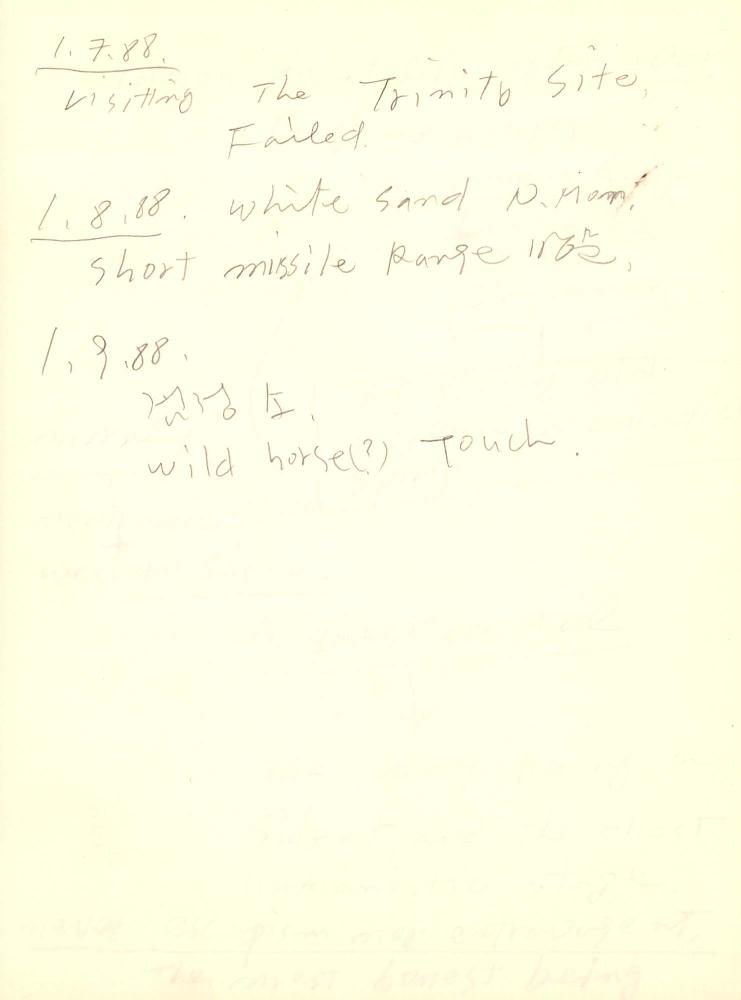 1.7.88.
Visiting The Trinity Site,
Failed.
1.8.88. White Sand N.Mom.
Short missile Range
1.9.88.
wild horse(?) Touch.